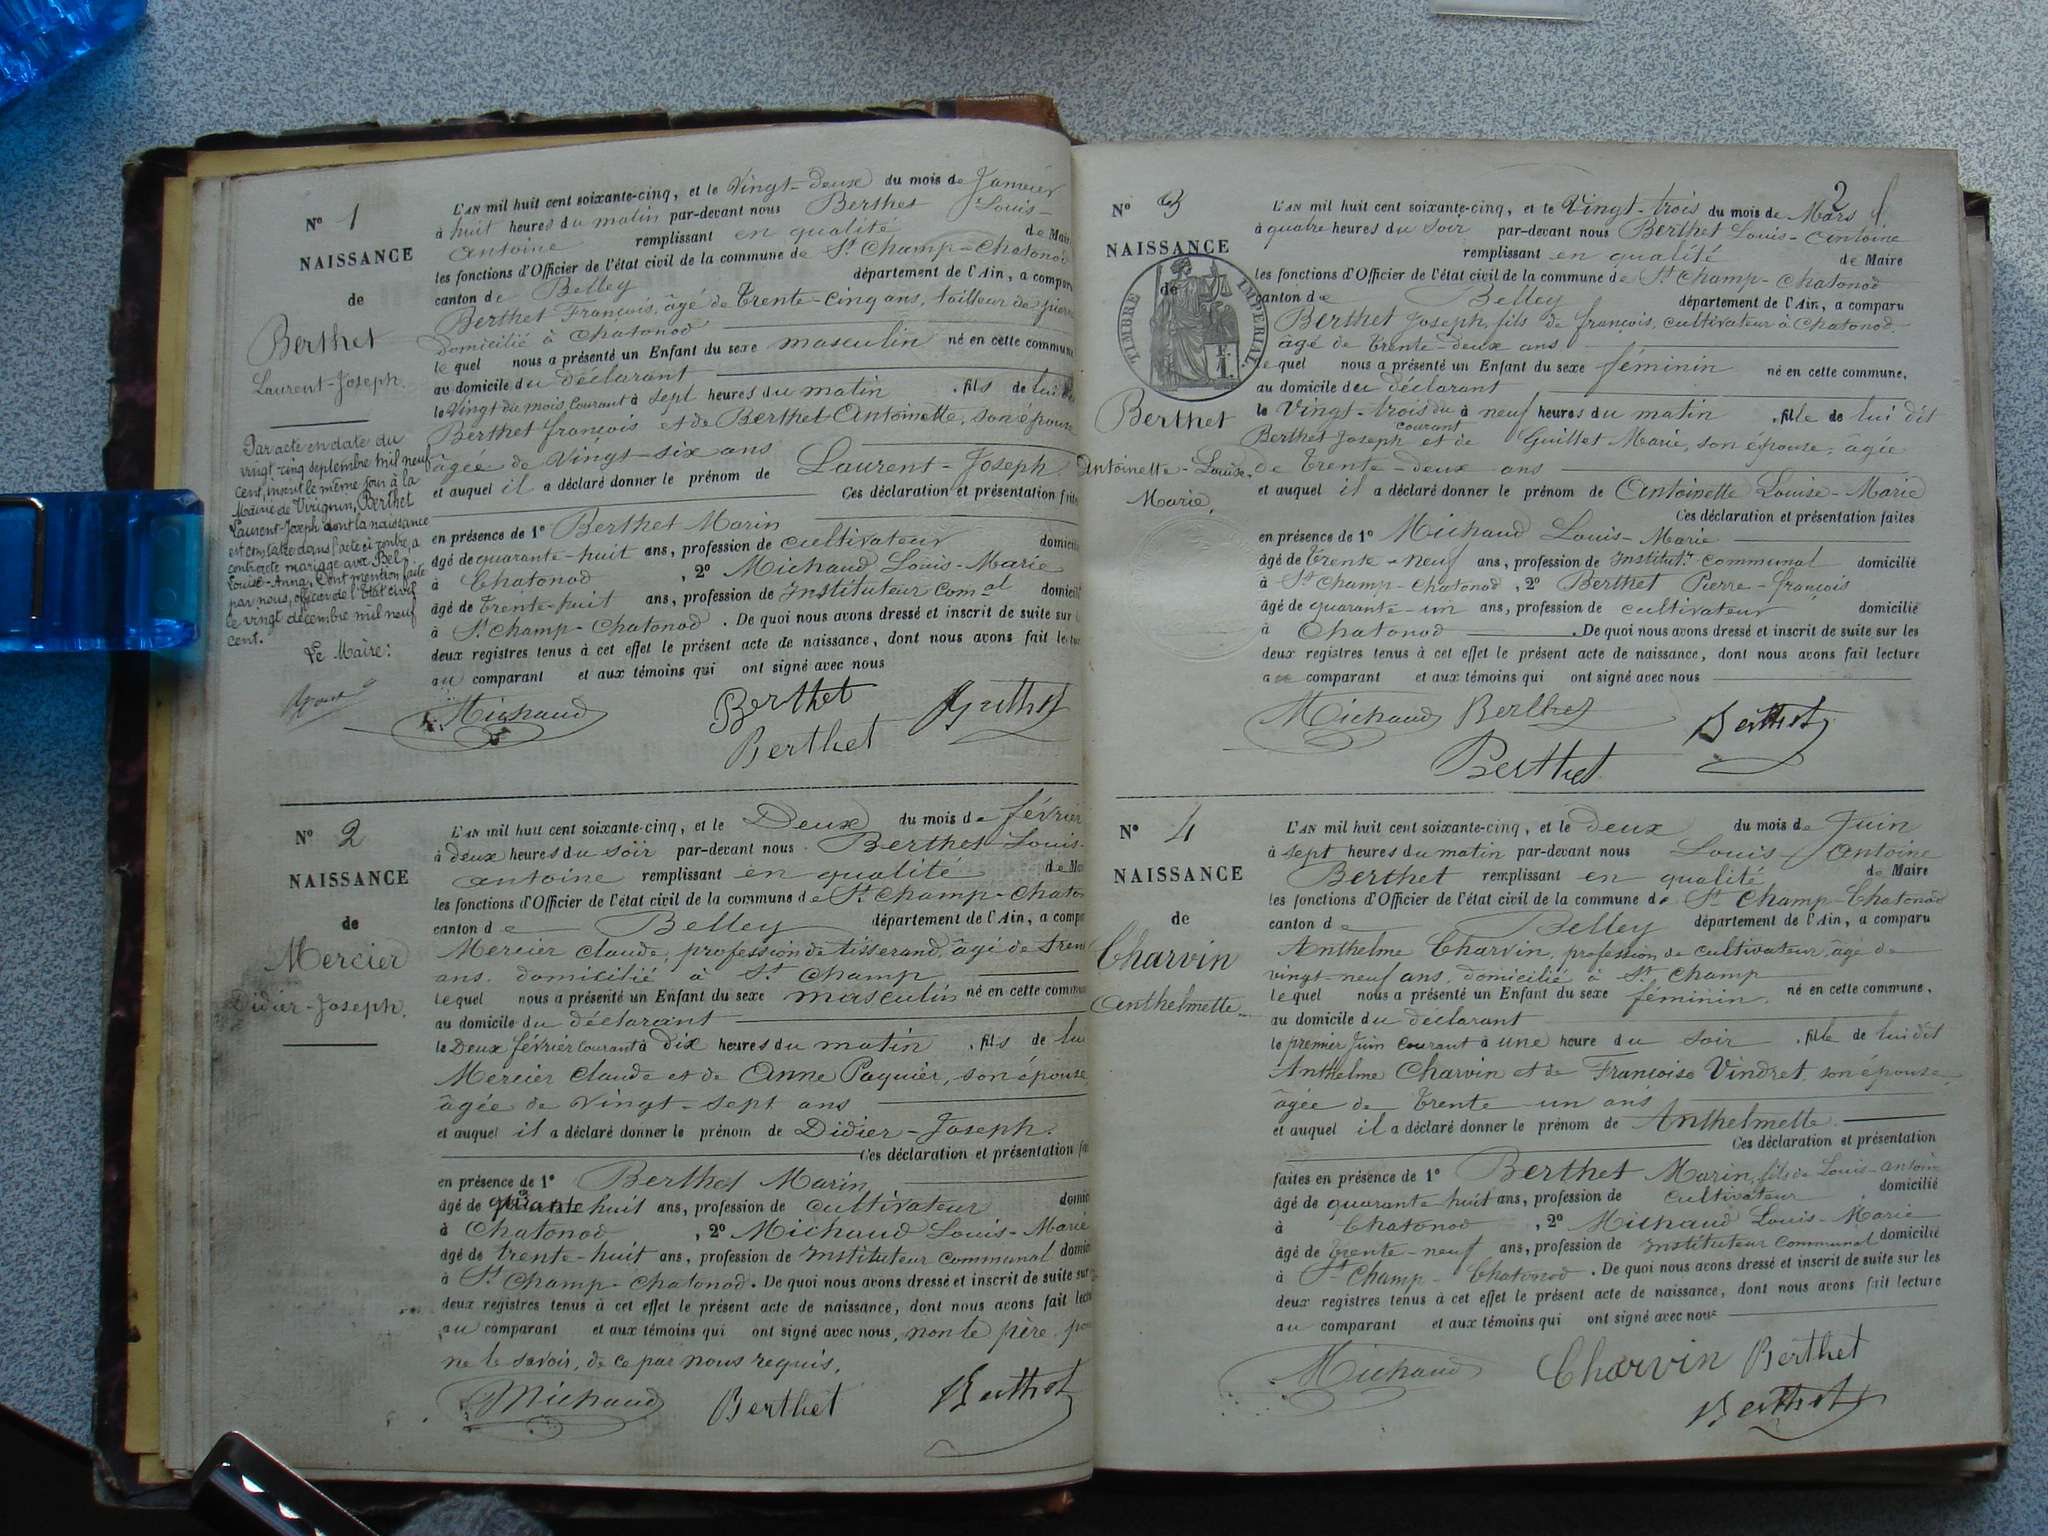 N° 1
NAISSANCE
de
Berthet
Laurent-Joseph.
Par acte en date du
vingt cinq septembre mil neuf
cent, inscrit le même jour à la
Mairie de Virignin, Berthet
Laurent-Joseph dont la naissance
est constatée dans l'acte ci-contre, a
contracté mariage avec Bel
Louise-Anna. Dont mention faite
par nous, officier de l'état civil
le vingt décembre mil neuf
cent.
Le Maire:
L'AN mil huit cent soixante-cinq, et le Vingt-deux du mois de Janvier
à huit heures du matin par-devant nous Berthet Louis-
Antoine remplissant en qualité de Mair
les fonctions d'Officier de l'état civil de la commune de St Champ-Chatonod
canton de Belley département de l'Ain, a comparu
Berthet François, âgé de trente-cinq ans, tailleur de pierre
domicilié à Chatonod
lequel nous a présenté un Enfant du sexe masculin né en cette commune
au domicile du déclarant
le Vingt du mois Courant à sept heures du matin , fils de lui dit
Berthet françois et de Berthet Antoinette, son épouse
âgée de Vingt-six ans
et auquel il a déclaré donner le prénom de Laurent-Joseph.
Ces déclaration et présentation faites
en présence de 1° Berthet Marin
âgé de quarante-huit ans, profession de cultivateur domicilié
à Chatonod , 2° Michaud Louis-Marie
âgé de trente-huit ans, profession de Instituteur Comal domicilié
à St Champ-Chatonod. De quoi nous avons dressé et inscrit de suite sur l
deux registres tenus à cet effet le présent acte de naissance, dont nous avons fait lectur
au comparant et aux témoins qui ont signé avec nous
Michaud Berthet Berthet
Berthet
N° 2
NAISSANCE
de
Mercier
Didier-Joseph.
L'AN mil huit cent soixante-cinq, et le Deux du mois de février
à deux heures du soir par-devant nous Berthet Louis-
Antoine remplissant en qualité de Ma
les fonctions d'Officier de l'état civil de la commune de St Champ-Chaton
canton de Belley département de l'Ain, a compar
Mercier Claude, profession de tisserand, âgé de tren
ans, domicilié à St Champ
lequel nous a présenté un Enfant du sexe masculin né en cette commun
au domicile du déclarant
le Deux février courant à dix heures du matin , fils de lui
Mercier Claude et de Anne Paquier, son épouse,
âgée de Vingt-sept ans
et auquel il a déclaré donner le prénom de Didier-Joseph.
Ces déclaration et présentation fai
en présence de 1° Berthet Marin,
âgé de quarante huit ans, profession de cultivateur domici
à Chatonod , 2° Michaud Louis-Marie
âgé de trente-huit ans, profession de Instituteur Communal domici
à St Champ-Chatonod. De quoi nous avons dressé et inscrit de suite sur
deux registres tenus à cet effet le présent acte de naissance, dont nous avons fait lect
au comparant et aux témoins qui ont signé avec nous, non le père, pour
ne le savoir, de ce par nous requis.
Michaud Berthet Berthet
2
N° 3
NAISSANCE
de
TIMBRE IMPÉRIAL
Berthet
Antoinette-Louise-
Marie.
L'AN mil huit cent soixante-cinq, et le Vingt-trois du mois de Mars
à quatre heures du soir par-devant nous Berthet Louis-Antoine
remplissant en qualité de Maire
les fonctions d'Officier de l'état civil de la commune de St Champ-Chatonod
canton de Belley département de l'Ain, a comparu
Berthet Joseph, fils de françois, cultivateur à Chatonod
âgé de trente-deux ans
lequel nous a présenté un Enfant du sexe féminin né en cette commune,
au domicile du déclarant
le Vingt-trois du courant à neuf heures du matin , fille de lui dit
Berthet Joseph et de Guillet Marie, son épouse, âgée
de trente-deux ans
et auquel il a déclaré donner le prénom de Antoinette Louise-Marie
Ces déclaration et présentation faites
en présence de 1° Michaud Louis-Marie
âgé de trente-neuf ans, profession de Institutr Communal domicilié
à St Champ-Chatonod, 2° Berthet Pierre-françois
âgé de quarante-un ans, profession de cultivateur domicilié
à Chatonod . De quoi nous avons dressé et inscrit de suite sur les
deux registres tenus à cet effet le présent acte de naissance, dont nous avons fait lecture
au comparant et aux témoins qui ont signé avec nous
Michaud Berthet Berthet
Berthet
N° 4
NAISSANCE
de
Charvin
Anthelmette
L'AN mil huit cent soixante-cinq, et le deux du mois de Juin
à sept heures du matin par-devant nous Louis-Antoine
Berthet remplissant en qualité de Maire
les fonctions d'Officier de l'état civil de la commune de St Champ-Chatonod
canton de Belley département de l'Ain, a comparu
Anthelme Charvin, profession de cultivateur, âgé de
vingt neuf ans, domicilié à St Champ
lequel nous a présenté un Enfant du sexe féminin, né en cette commune,
au domicile du déclarant
le premier Juin courant à une heure du soir , fille de lui dit
Anthelme Charvin et de Françoise Vindret, son épouse,
âgée de trente-un ans
et auquel il a déclaré donner le prénom de Anthelmette.
Ces déclaration et présentation
faites en présence de 1° Berthet Marin, fils de Louis-Antoine
âgé de quarante-huit ans, profession de cultivateur domicilié
à Chatonod , 2° Michaud Louis-Marie
âgé de trente-neuf ans, profession de Instituteur Communal domicilié
à St Champ-Chatonod. De quoi nous avons dressé et inscrit de suite sur les
deux registres tenus à cet effet le présent acte de naissance, dont nous avons fait lecture
au comparant et aux témoins qui ont signé avec nous
Michaud Charvin Berthet
Berthet